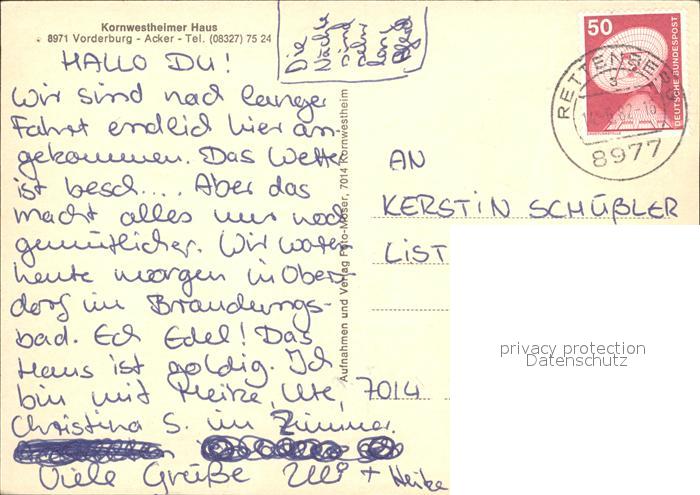 Kornwestheimer Haus
8971 Vorderburg - Acker - Tel. (08327) 75 24
HALLO DU!
Wir sind nach langer
Fahrt endlich hier an-
gekommen. Das Wetter
ist besch.... Aber das
macht alles nur noch
gemütlicher. Wir waren
heute morgen in Obers-
dorf im Brandungs-
bad. Echt Edel! Das
Haus ist goldig. Ich
bin mit Heike, Ute,
Christina S. im Zimmer.
Viele Grüße Ulli + Heike
Die
Nächte
sind
sehr
lang
Aufnahmen und Verlag Foto-Moser, 7014 Kornwestheim
50
DEUTSCHE BUNDESPOST
RETTENBERG
8977
AN
KERSTIN SCHÜßLER
LIST
7014
privacy protection
Datenschutz